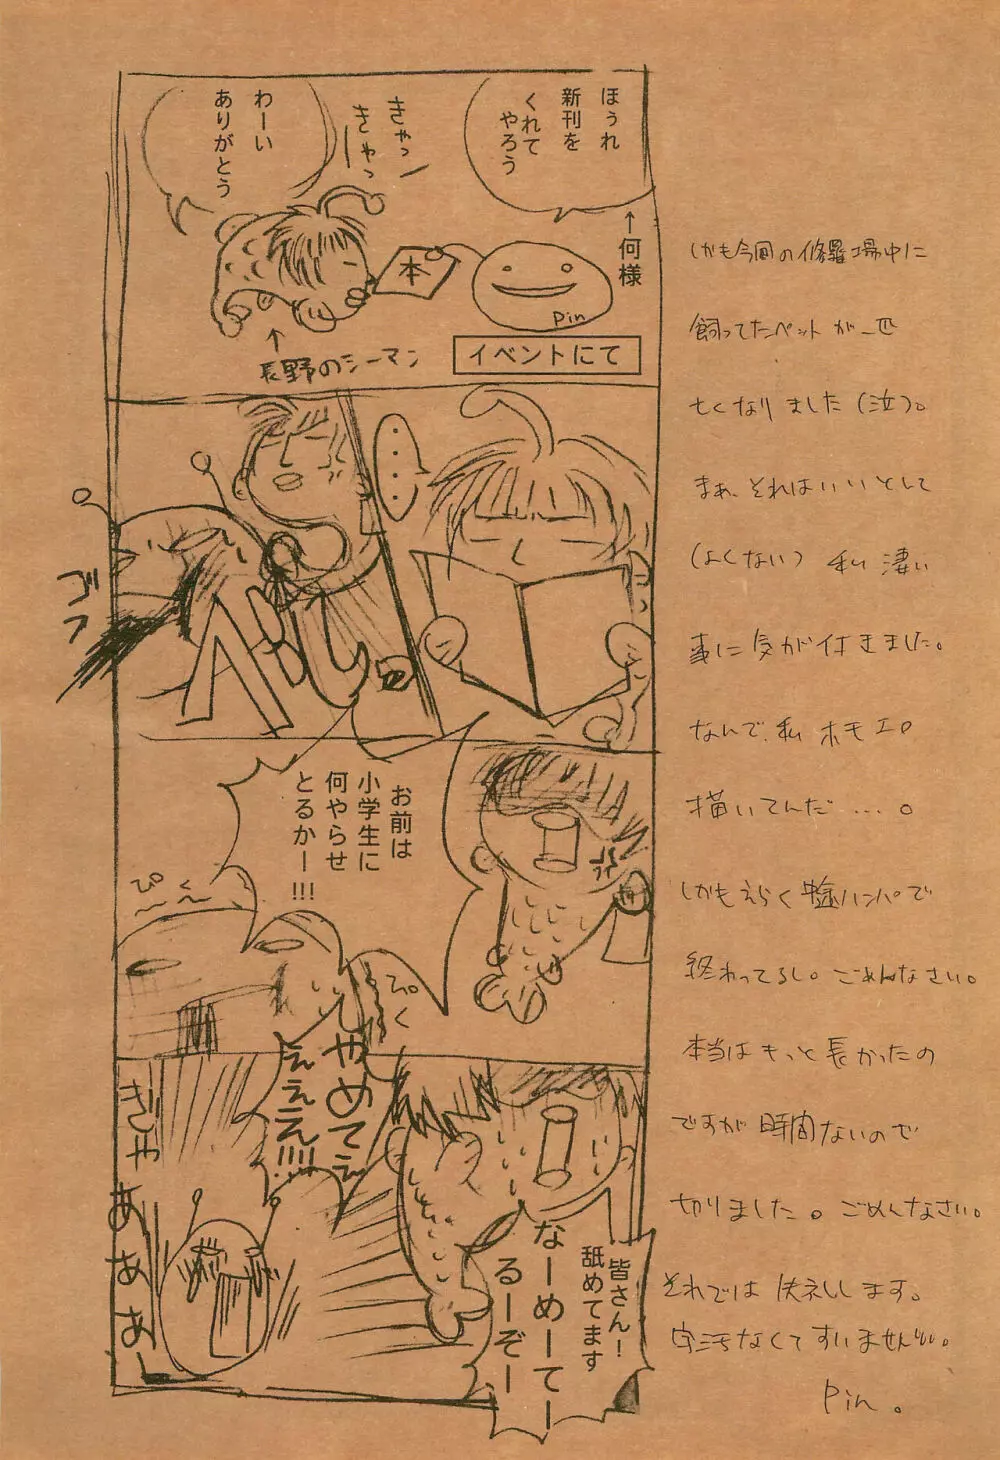 ほぅれ
新刊を
くれて
やろう
↑何様
きゃっ
きゃっ
わーい
ありがとう
本
Pin
↑
長野のシーマン
イベントにて
・・・・
ゴフ
お前は
小学生に
何やらせ
とるかー!!!
ぴくー
ぴく
皆さん!
舐めてます
なーめーてー
るーぞー
やめてぇ
ぇぇえ!!!!
ぎゃ
あああー
しかも今回の修羅場中に
飼ってたペットが一匹
亡くなりました(泣)。
まぁ、それはいいとして
(よくない) 私 凄い
事に気が付きました。
なんで、私 ホモエロ
描いてんだ……。
しかもえらく中途ハンパで
終わってるし。ごめんなさい。
本当はもっと長かったの
ですが 時間ないので
切りました。ごめんなさい。
それでは 失礼します。
字汚なくてすいません。
Pin。